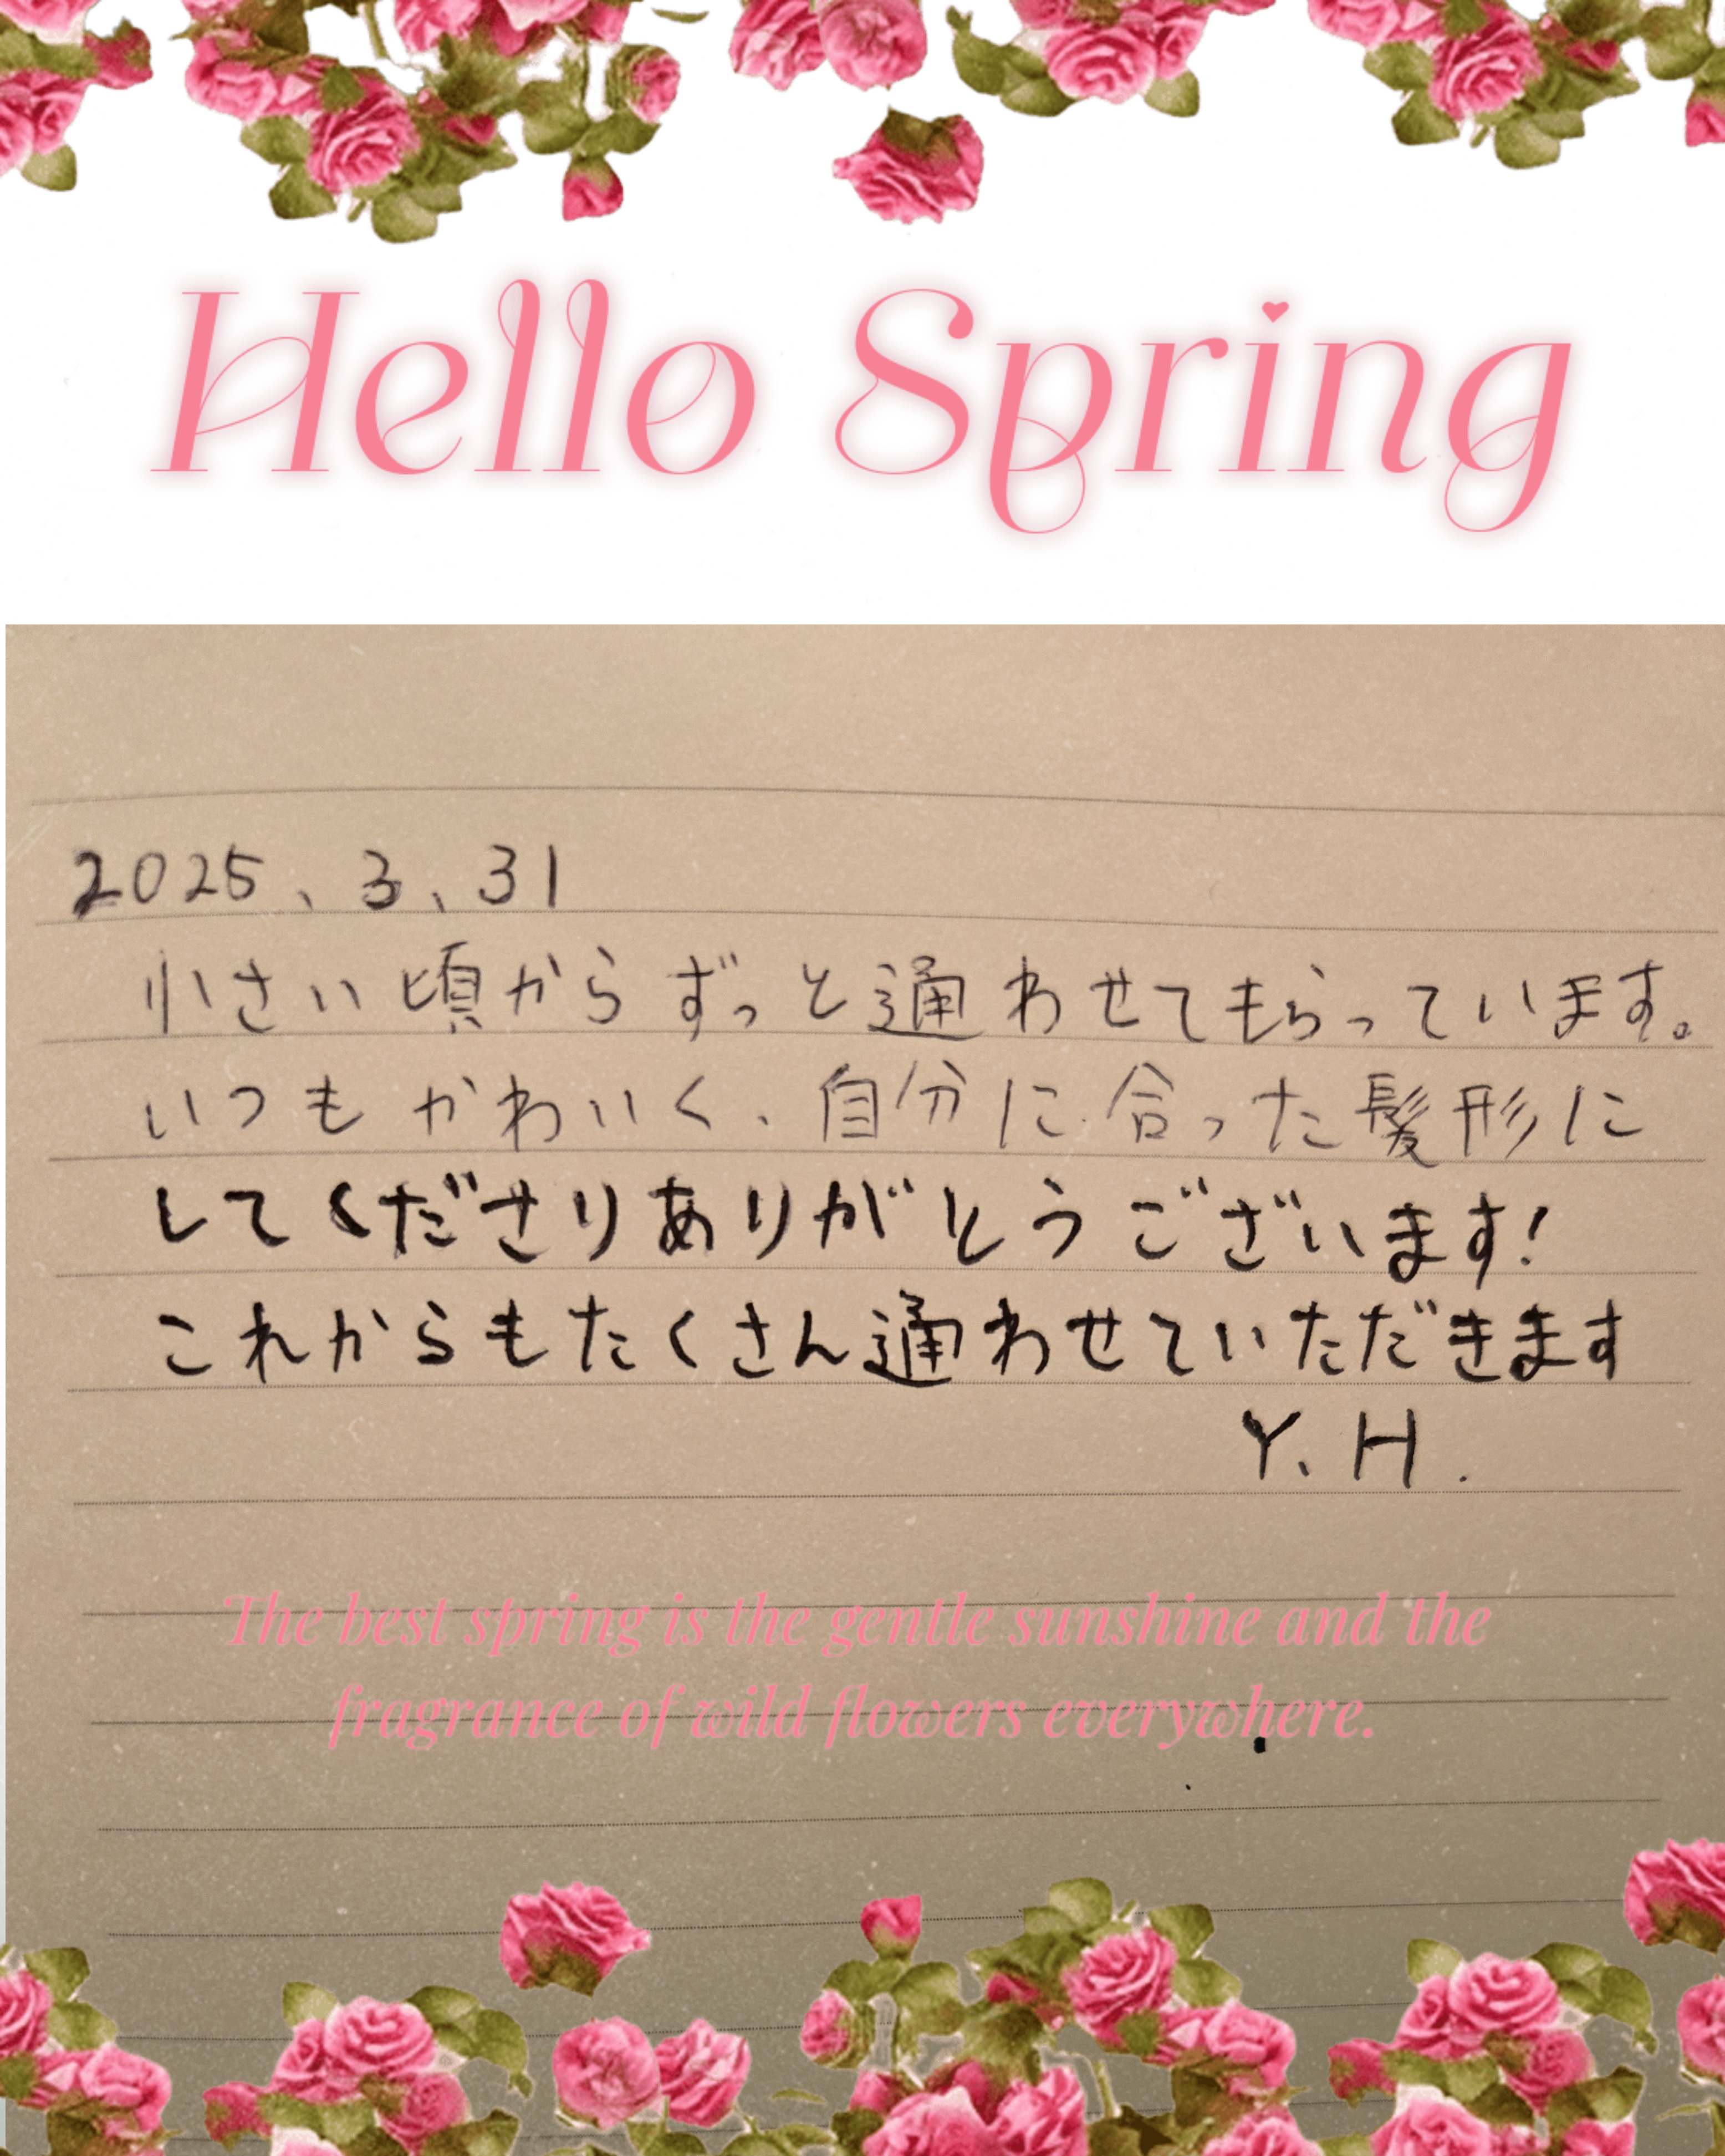 Hello Spring
2025、3、31
小さい頃からずっと通わせてもらっています。
いつもかわいく、自分に合った髪形に
してくださりありがとうございます!
これからもたくさん通わせていただきます
Y、H.
The best spring is the gentle sunshine and the
fragrance of wild flowers everywhere.